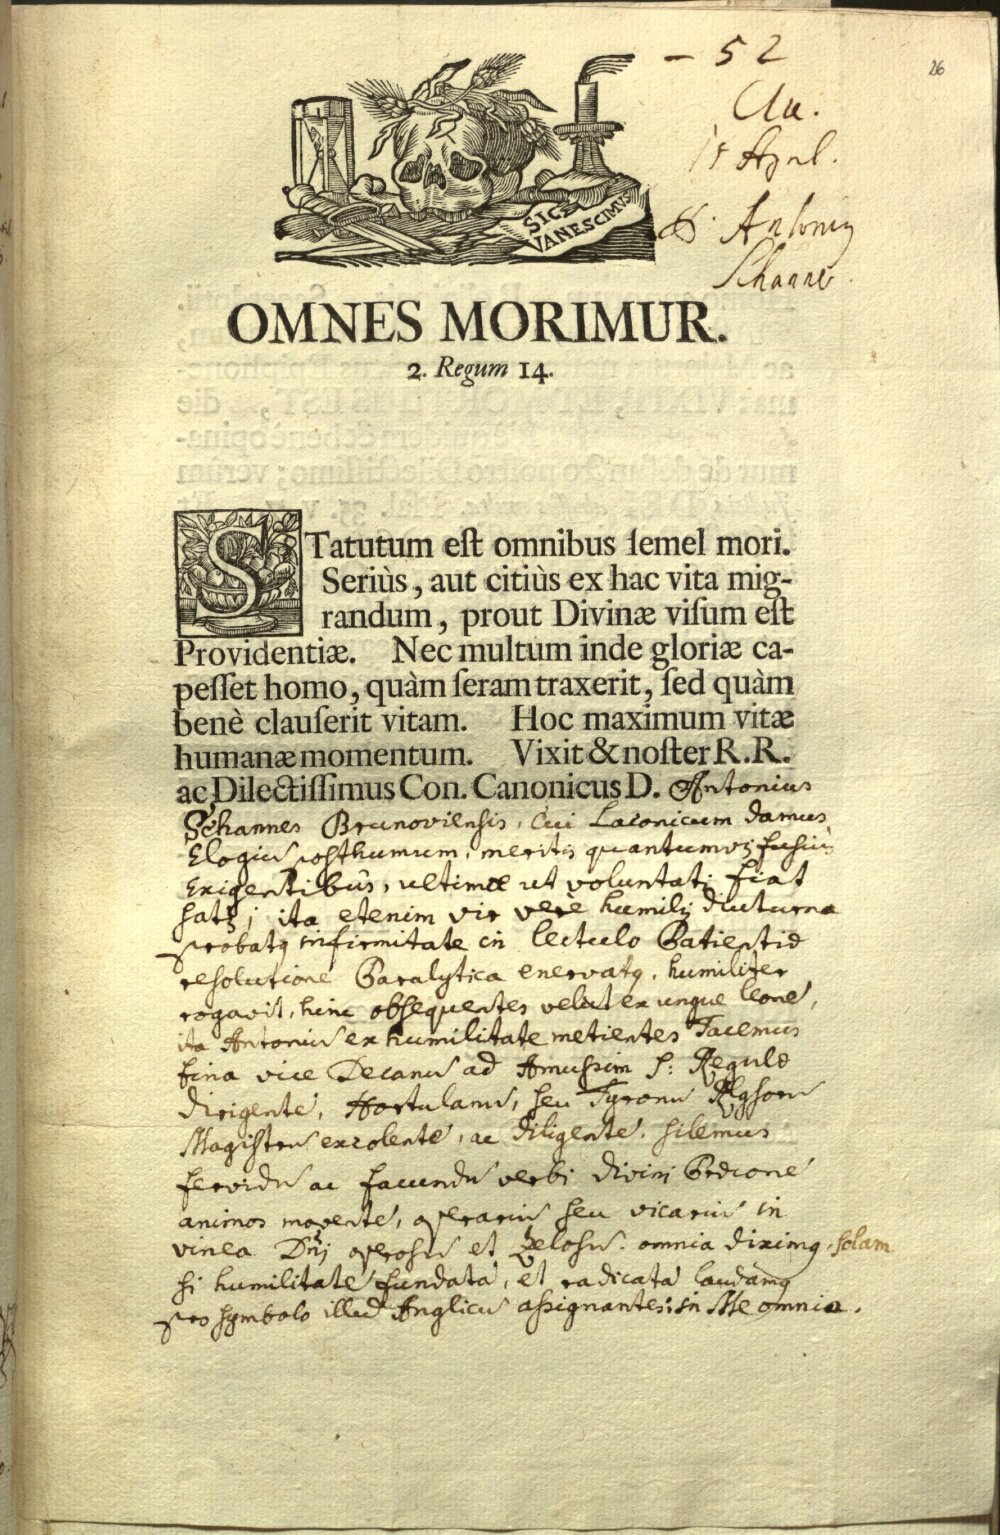 26
– 52
Cla.
April.
Antonius
Schannes
SIC
VANESCIMUS
OMNES MORIMUR.
2. Regum 14.
STatutum eſt omnibus ſemel mori.
Seriùs, aut citiùs ex hac vita mig-
randum, prout Divinæ viſum eſt
Providentiæ. Nec multum inde gloriæ ca-
peſſet homo, quàm ſeram traxerit, ſed quàm
benè clauſerit vitam. Hoc maximum vitæ
humanæ momentum. Vixit & noſter R.R.
ac Dilectiſſimus Con. Canonicus D. Antonius
Schannes Brunoviensis, Cui Laconicum damus
Elogiū posthumum, meritis quantumvis fusius
Exigentibus, ultimæ ut voluntati fiat
satis; ita etenim vir verè humilis diuturna
probatq infirmitate in lectulo Patientiæ
resolutione Paralytica enervatq, humiliter
rogavit, hinc obsequentes velut ex ungue leonē,
ita Antoniū ex humilitate metientes Tacemus
bina vice Decanū ad Amussim S: Regulæ
dirigentē, Hortulanū, seu Tyronū
Magistrū excolentē, ac diligentē. silemus
fervidū ac facundū verbi divini Prdcone
animos moventē, operariū seu vicariū in
vinea Dni operosū et Zelosū. omnia diximq, solam
si humilitatē fundatā, et radicatā laudamq
pro symbolo illud Anglicū assignantes: in Me omnia.